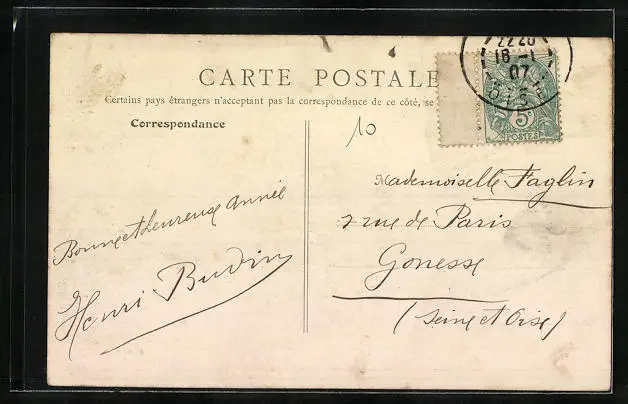 CARTE POSTALE
Certains pays étrangers n'acceptant pas la correspondance de ce côté, se
Correspondance
10
18-1
07
5c
POSTES
Mademoiselle Faglin
2 rue de Paris
Gonesse
(Seine et Oise)
Bonne et heureuse année
Henri Budin